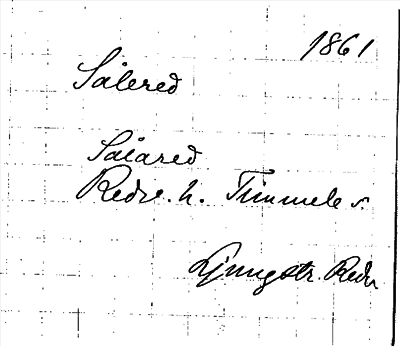 1861
Sålered
Salared
Redv. h. Timmele s.
Ljungstr. Redv